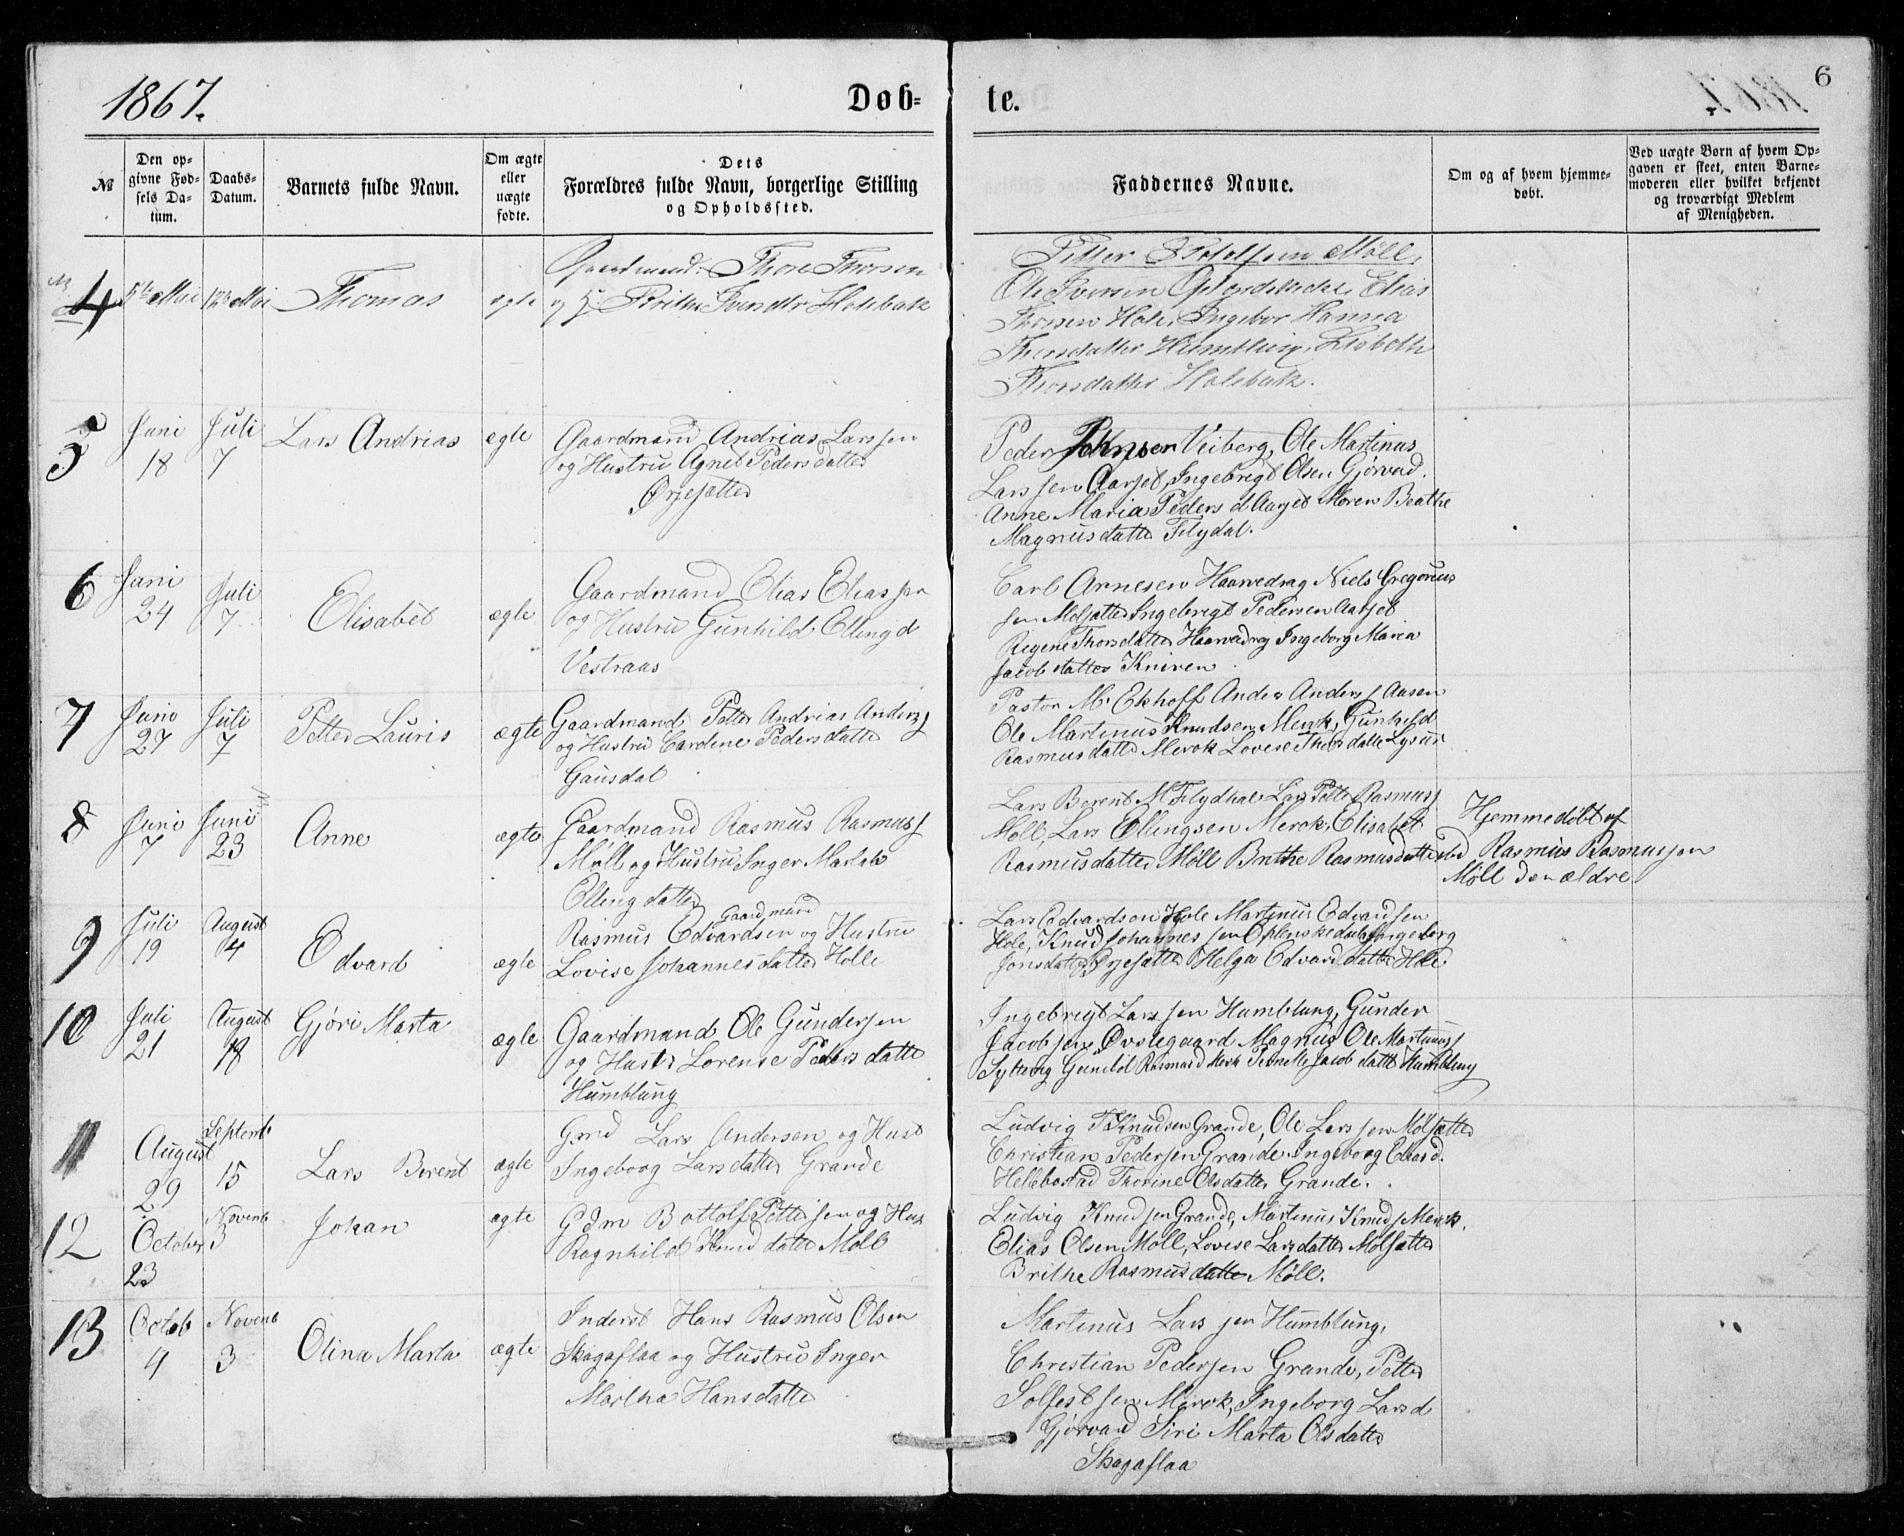 1867.
Døb-
te.
6
№
Den op-
givne Fød-
sels Da-
tum.
Daabs-
Datum.
Barnets fulde Navn.
Om ægte
eller
uægte
fødte.
Dets
Forældres fulde Navn, borgerlige Stilling
og Opholdssted.
Faddernes Navne.
Om og af hvem hjemme-
døbt.
Ved uægte Børn af hvem Op-
gaven er skeet, enten Barne-
moderen eller hvilket bekjendt
og troværdigt Medlem
af Menigheden.
4
5te Mai
12te Mai
Thomas
ægte
Gaardmand Thore Thorsen
og H. Brithe Iversdtr Holebak
Petter Møll,
Ole Iversen Elias
Thorsen Hole, Ingebor Hanna
Thorsdatter Humblung, Lisbeth
Thorsdatter Holebak.
5
Juni
18
Juli
7
Lars Andrias
ægte
Gaardmand Andrias Larssen
og Hustru Agnet Peders datter
Ørjesætter
Peder Johnsen Viiberg, Ole Martinus
Larssen Aarset, Ingebrigt Olsen Gjørvad.
Anne Maria Peders d Aarset Maren Beathe
Magnus datter Flydal.
6
Juni
24
Juli
7
Elisabet
ægte
Gaardmand Elias Eliassen
og Hustru Gunhild Elling d
Vestraas
Carl Arnesen Haarvedrag Niels Gregorius
sen Molsætter Ingebrigt Pedersen Aarset
Regene Thorsdatter Haarvedrag Ingeborg Maria
Jacob datter Kniven.
7
Juni
27
Juli
7
Petter Lauris
ægte
Gaardmand Petter Andrias Anders
og Hustru Cardene Peders datter
Gausdal
Pastor M. Ekhoff Anders Anders Aasen
Ole Martinus Knudsen Merok, Gunhild
Rasmus datter Merok Lovise Thors datter
8
Juni
7
Juni
23
Anne
ægte
Gaardmand Rasmus Rasmus
Møll og Hustru Inger Marta
Elling datter
Lars Berent M Flydhal Lars Petter Rasmus
Møll, Lars Ellingsen Merok, Elisabet
Rasmusdatter Møll Brithe Rasmusdatter
Hjemmedøbt af
Rasmus Rasmussen
Møll den ældre
9
Juli
19
August
4
Edvard
ægte
Gaardmand
Rasmus Edvardsen og Hustru
Lovise Johannes datter Holle
Lars Edvardsen Hole Martinus Edvardsen
Hole, Knud Johannes sen Ingeborg
Jonsdatter Ørjesætter Helga Edvard datter Hole.
10
Juli
21
August
18
Gjøri Marta
ægte
Gaardmand Ole Gundersen
og Hustr Lorense Peders datter
Humblung
Ingebrigt Lars sen Humblung, Gunder
Jacobsen Ovslegaard Magnus Ole Martinus
Sylteng Gunild Rasmus d Merk Pernelle Jacob datt Humblung
11
August
29
Septemb
15
Lars Berent
ægte
Gmd Lars Andersen og Hust
Ingeborg Larsdatter Grande
Ludvig Knudsen Grande, Ole Lars sen Molsætter
Christian Pedersen Grande Ingeborg Edvard.
Hellebostad Thorine Olsdatter Grande.
12
October
23
Novemb
3
Johan
ægte
Gdm Bottolf Petter sen og Hus
Ragnhild Knud datter Møll
Ludvig Knudsen Grande, Martinus Knud s Merok.
Elias Olsen Møll, Lovise Larsdatter Molsætter
Brithe Rasmusdatter Møll.
13
Octob
4
Novemb
3
Olina Marta
ægte
Inderst Hans Rasmus Olsen
Skagaflaa og Hustru Inger
Martha Hansdatter
Martinus Lars sen Humblung,
Christian Pedersen Grande, Petter
Solfest sen Merok, Ingeborg Lars d
Gjørvad Siri Marta Olsdatter
Skagaflaa